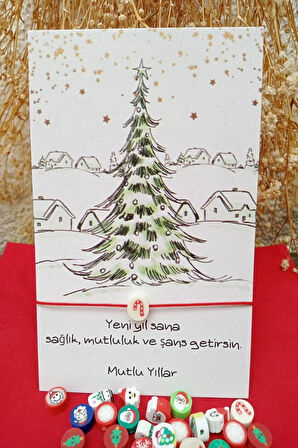 Yeni yıl sana
sağlık, mutluluk ve şans getirsin.
Mutlu Yıllar